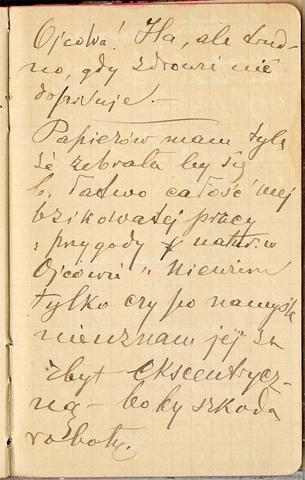 Ojcowa! Ha, ale trud-
no, gdy zdrowie nie
dopisuje. —
Papierów mam tyle
że zebrała by się
b. łatwo całość mej
bzikowatej pracy
i przygody z natur. w
Ojcowie". Niewiem
tylko czy po namyśle
nieuznam jej za
zbyt ekscentrycz-
ną — boby szkoda
roboty.